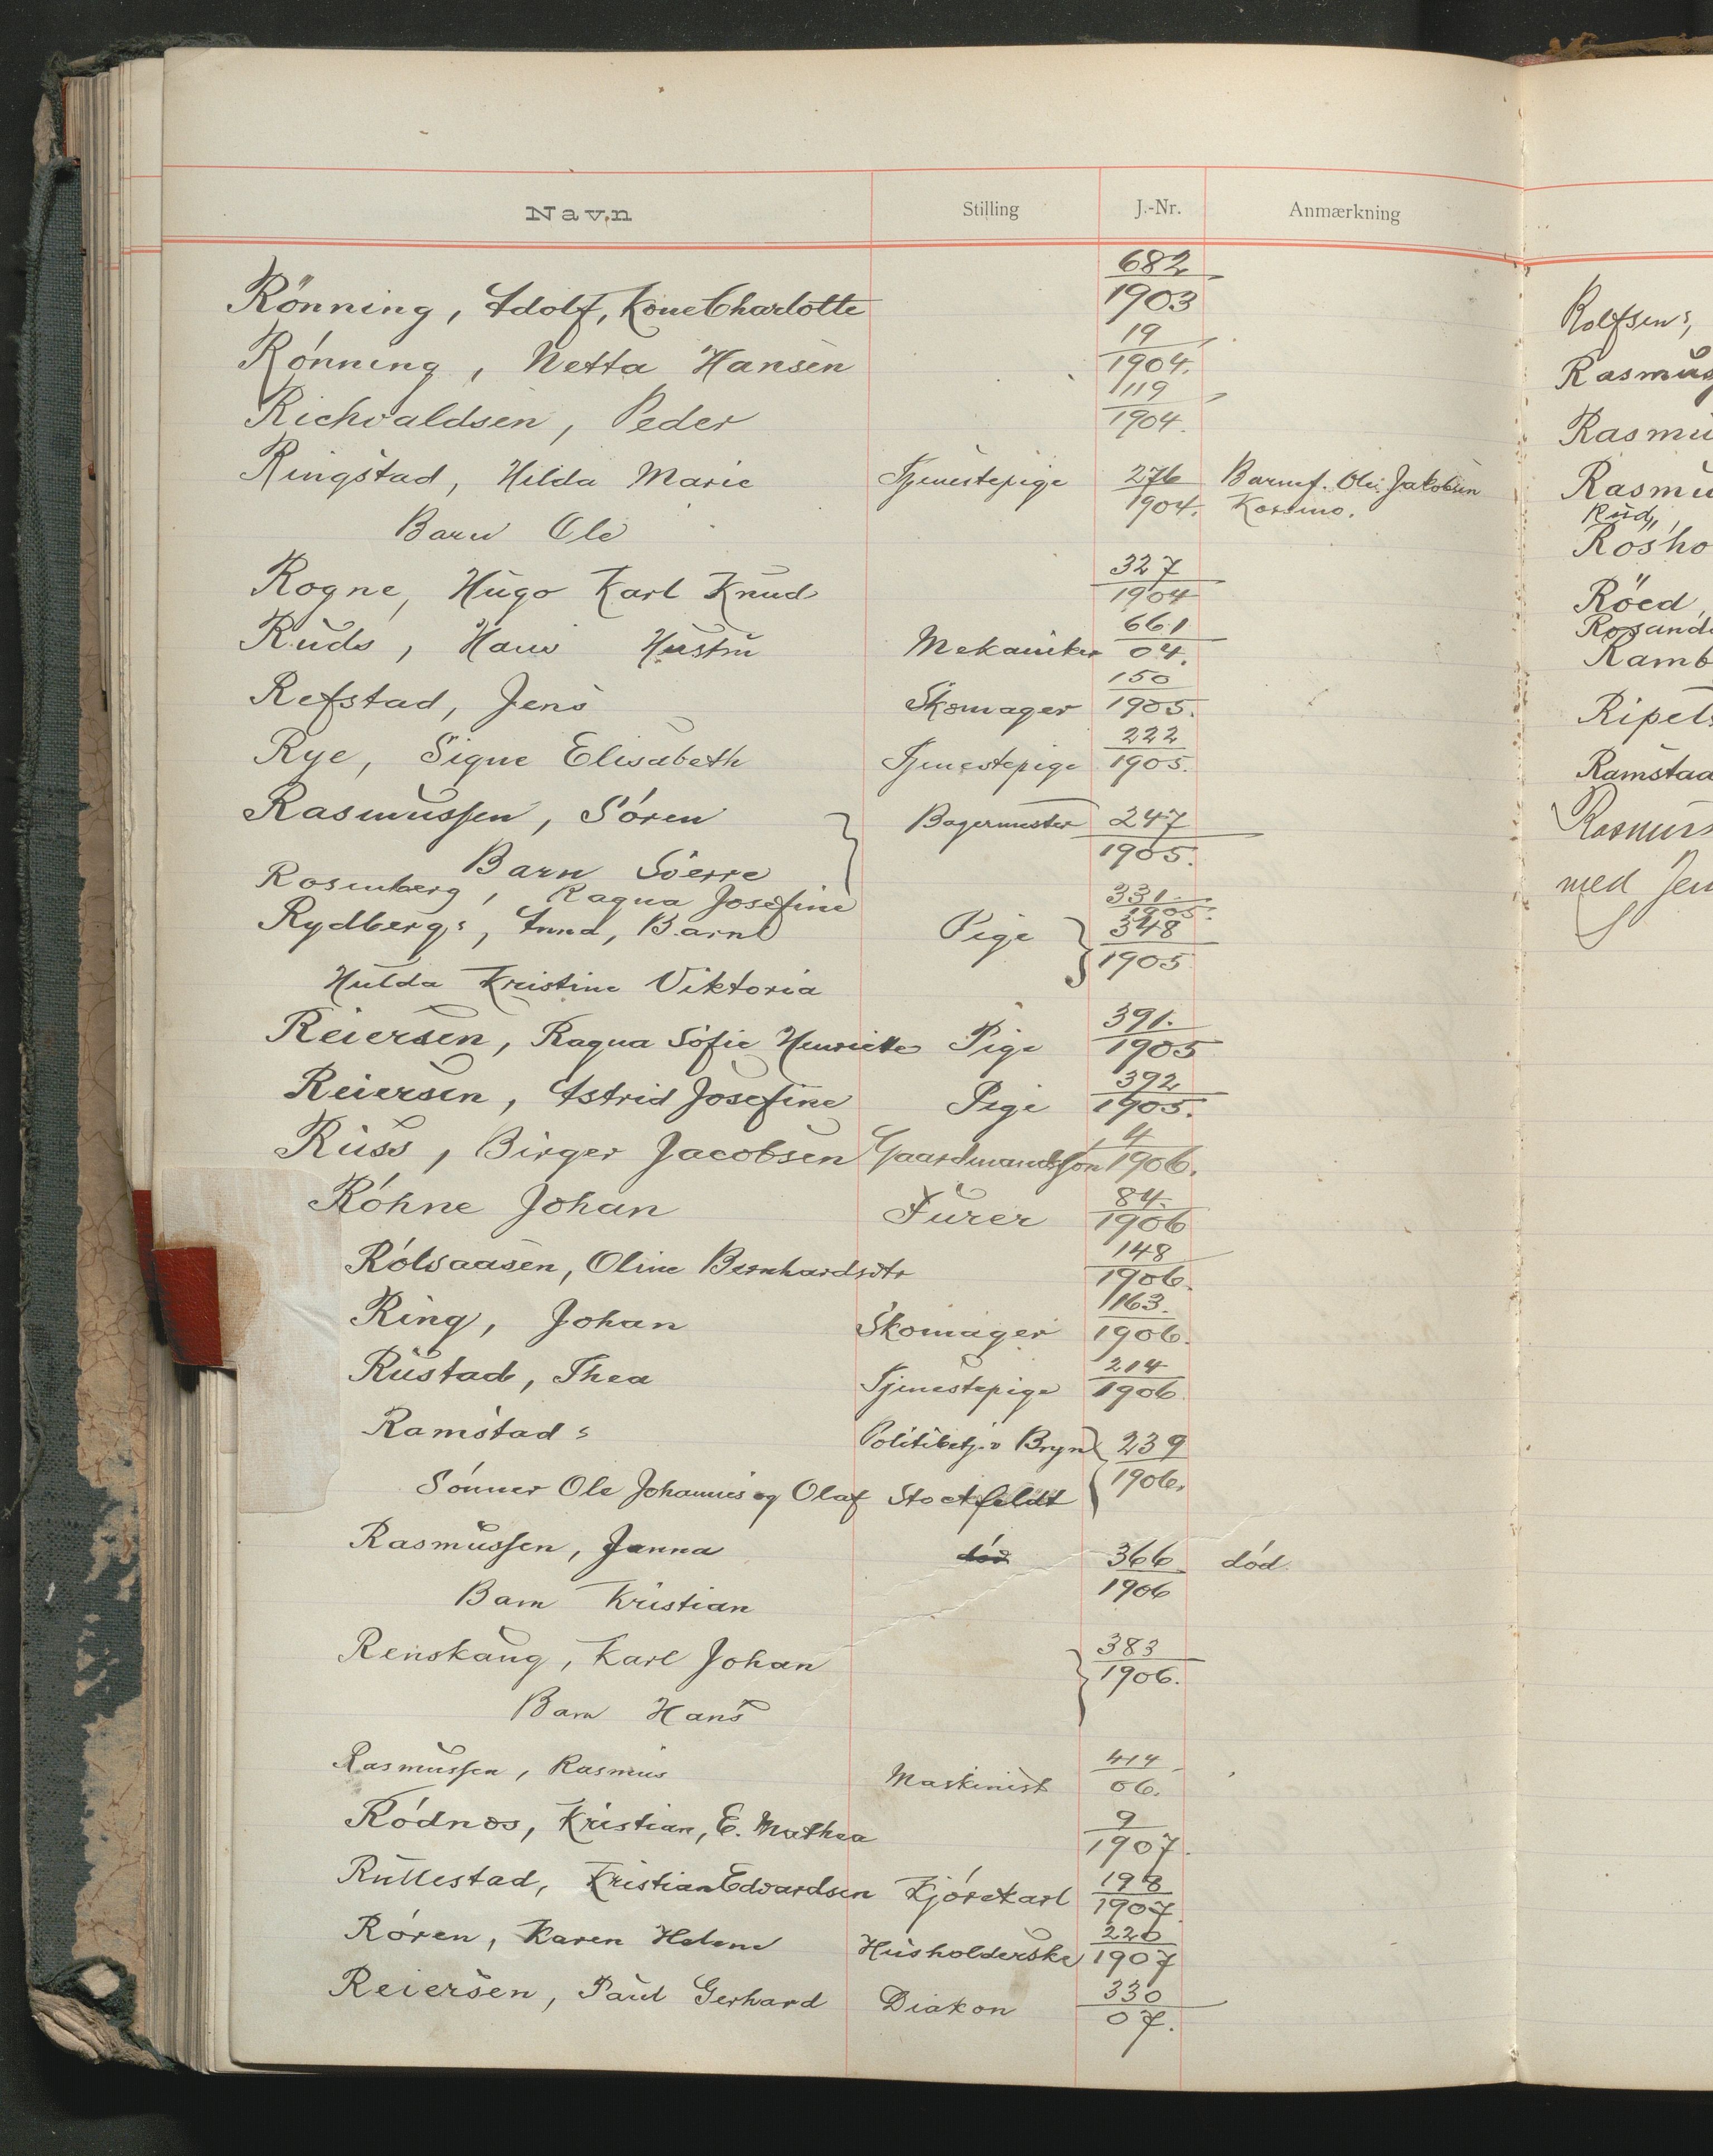 Navn Stilling J.-Nr. Anmærkning
Rönning, Adolf, Kone Charlotte 682/1903
Rónning, Netta Hansen 19/1904.
Richvaldsen, Peder 119/1904.
Ringstad, Hilda Marie Tjenestepige 276/1904. Barnef. Ole Jakobsen
Barn Ole
Rogne, Hugo Karl Knud 327/1904
Ruds, Hans Hustru Mekaniker 661/04.
Refstad, Jens Skomager 150/1905.
Rye, Signe Elisabeth Tjenestepige 222/1905.
Rasmussen, Sóren Bagermester 247/1905.
Barn Sverre
Rosenberg, Ragna Josefine 331/1905.
Rydbergs, Anna, Barn Pige 348/1905
Hulda Kristine Viktoria
Reiersen, Ragna Sofie Henriette Pige 391./1905
Reiersen, Astrid Josefine Pige 392/1905.
Russ, Birger Jacobsen Gaardmandssøn 4/1906.
Róhne Johan Furer 84./1906
Rólsaasen, Oline Bernhardsdtr 148/1906.
Ring, Johan Skomager 163./1906.
Rustad, Thea Tjenestepige 214/1906
Ramstads Politibetj. v Bryn 239/1906.
Sónner Ole Johannes og Olaf Stockfeldt
Rasmussen, Janna dód 366/1906 dód.
Barn Kristian
Renskaug, Karl Johan 383/1906.
Barn Hans
Rasmussen, Rasmus Maskinist 414/06.
Ródnes, Kristian, E. Mathea 9/1907.
Rullestad, Kristian Edvardsen Kjórekarl 198/1907.
Róren, Karen Helene Husholderske 226/1907
Reiersen, Paul Gerhard Diakon 330/07.
Rolfsens,
Rasmus
Rasmu
Rasmu
Rud,
Rosho
Röed,
Rosand
Ramb
Ripets
Ramstaa
Rasmus
med Jen